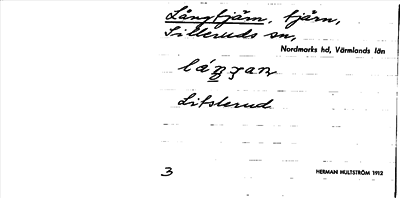 Långtjärn, tjärn,
Silleruds sn,
Nordmarks hd, Värmlands län
Sitslerud
3
HERMAN HULTSTRÖM 1912